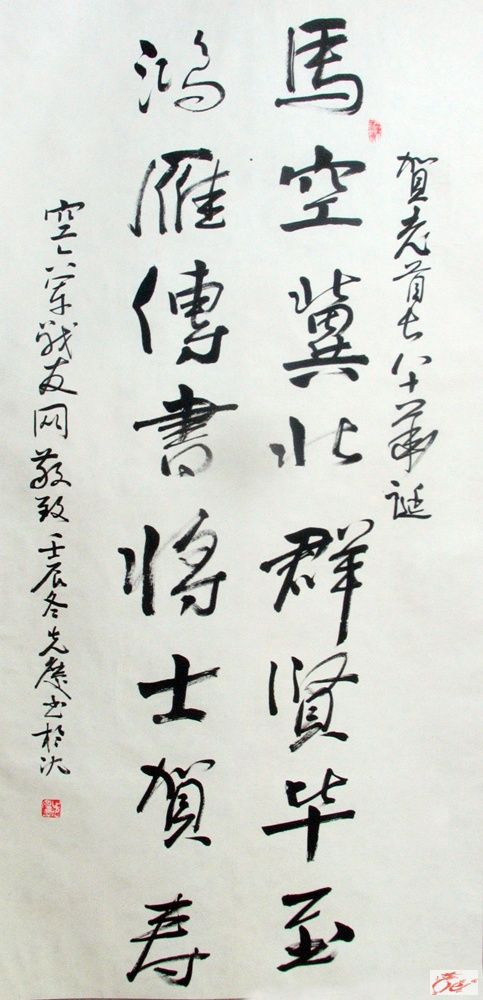 賀老首长八十華誕
馬空冀北群賢毕至
鴻雁傳書将士賀寿
空六軍战友网敬致壬辰冬先书於沈